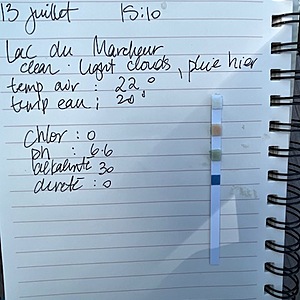 13 juillet 15:10
Lac du Marcheur
clear. light clouds, pluie hier
temp air : 22°
temp eau : 20°
Chlor : 0
ph : 6.6
alkalinité 30
dureté : 0